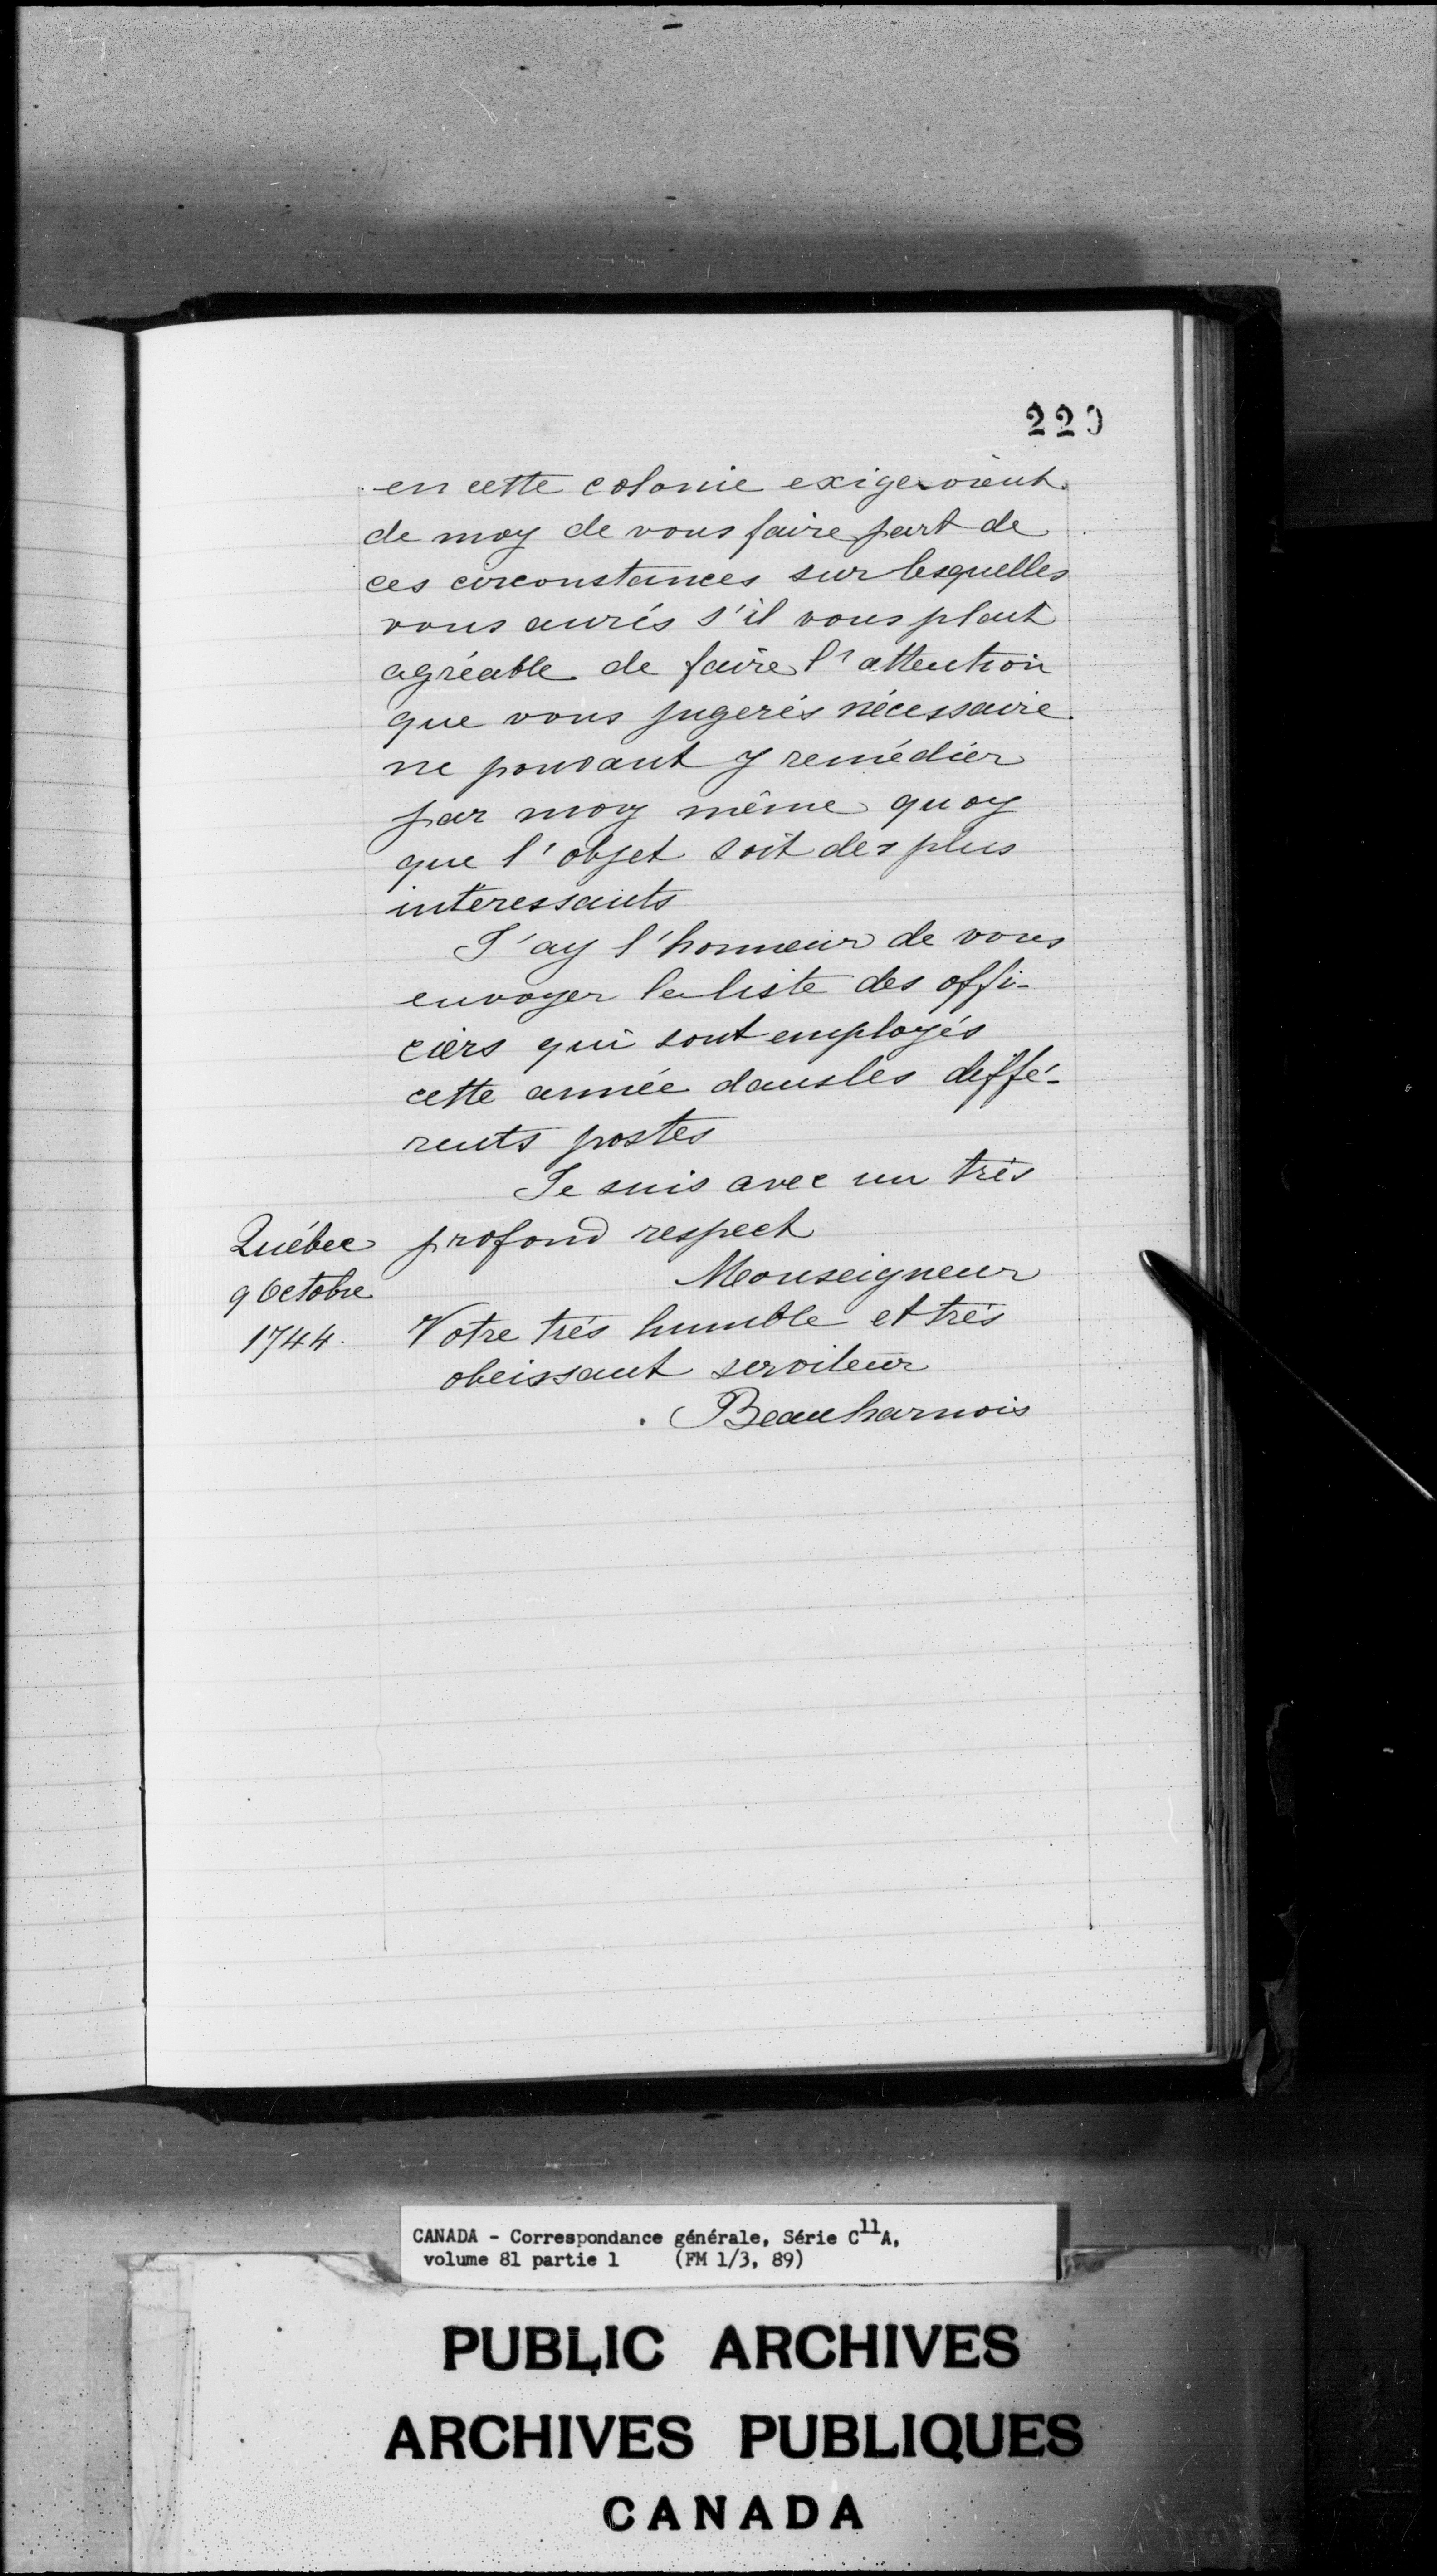 220
en cette colonie exigeroient
de moy de vous faire part de
ces circonstances sur lesquelles
vous aurés s'il vous plait
agréable de faire l'attention
que vous jugerés nécessaire
ne pouvant y remédier
par moy même quoy
que l'objet soit des plus
interessants
J'ay l'honneur de vous
envoyer la liste des offi-
ciers qui sont employés
cette année dans les diffé-
rents postes
Je suis avec un très
profond respect
Monseigneur
Votre très humble et très
obeissant serviteur
Beauharnois
Québec
9 Octobre
1744.
CANADA - Correspondance générale, Série C11A,
volume 81 partie 1 (FM 1/3, 89)
PUBLIC ARCHIVES
ARCHIVES PUBLIQUES
CANADA